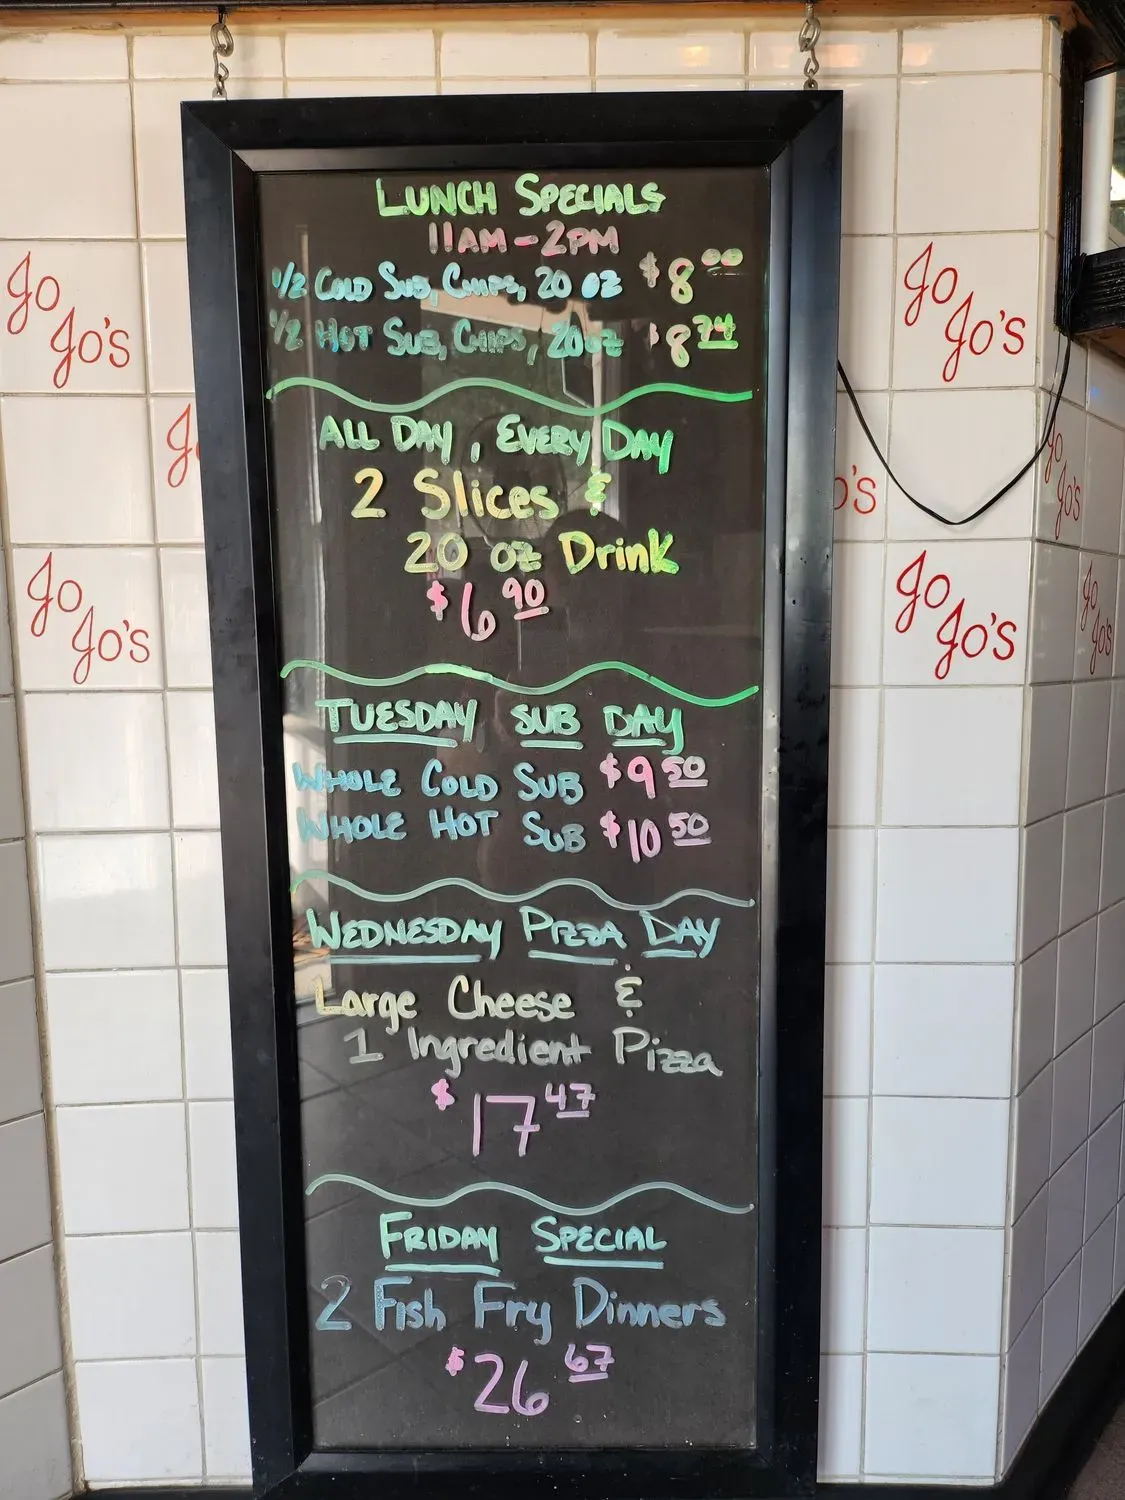 LUNCH SPECIALS
11AM - 2PM
1/2 COLD SUB, CHIPS, 20 oz $8.00
1/2 HOT SUB, CHIPS, 20 oz $8.74
ALL DAY, EVERY DAY
2 Slices &
20 oz Drink
$6.90
TUESDAY SUB DAY
WHOLE COLD SUB $9.50
WHOLE HOT SUB $10.50
WEDNESDAY PIZZA DAY
Large Cheese &
1 Ingredient Pizza
$17.47
FRIDAY SPECIAL
2 Fish Fry Dinners
$26.67
Jo
Jo's
Jo
Jo's
Jo
Jo's
Jo
Jo's
Jo
Jo's
Jo
Jo's